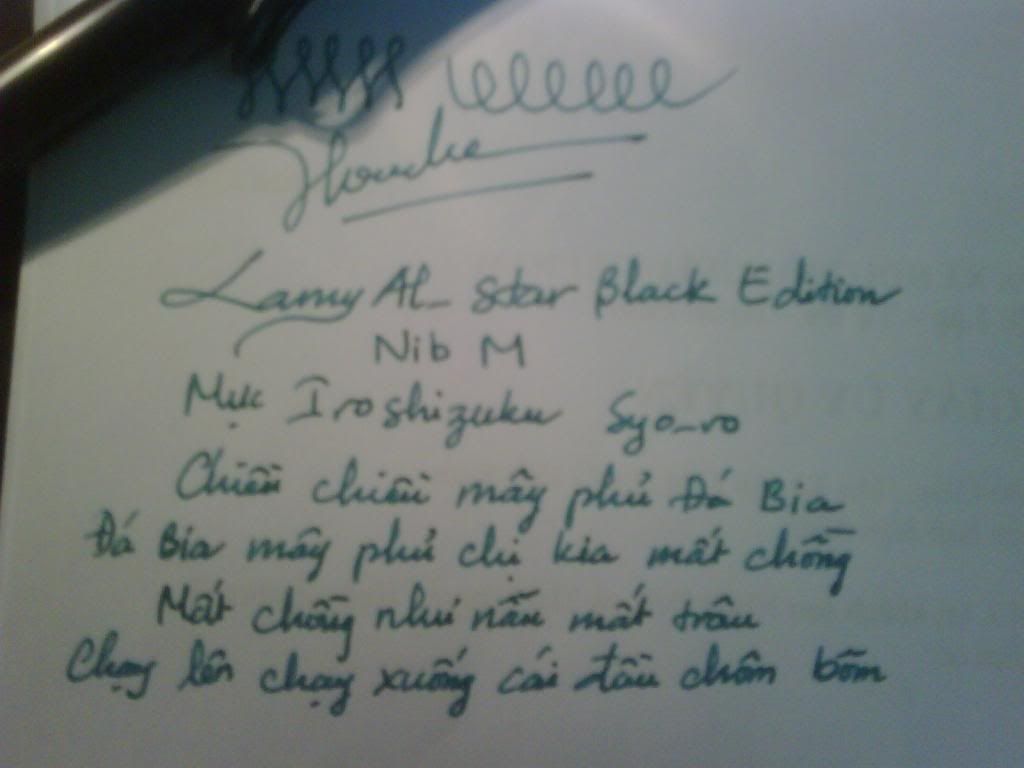 Lamy Al_ Star Black Edition
Nib M
Mực Iroshizuku Syo_ro
Chiều chiều mây phủ Đá Bia
Đá Bia mây phủ chị kia mất chồng
Mất chồng như nẫu mất trâu
Chạy lên chạy xuống cái đầu chôm bôm